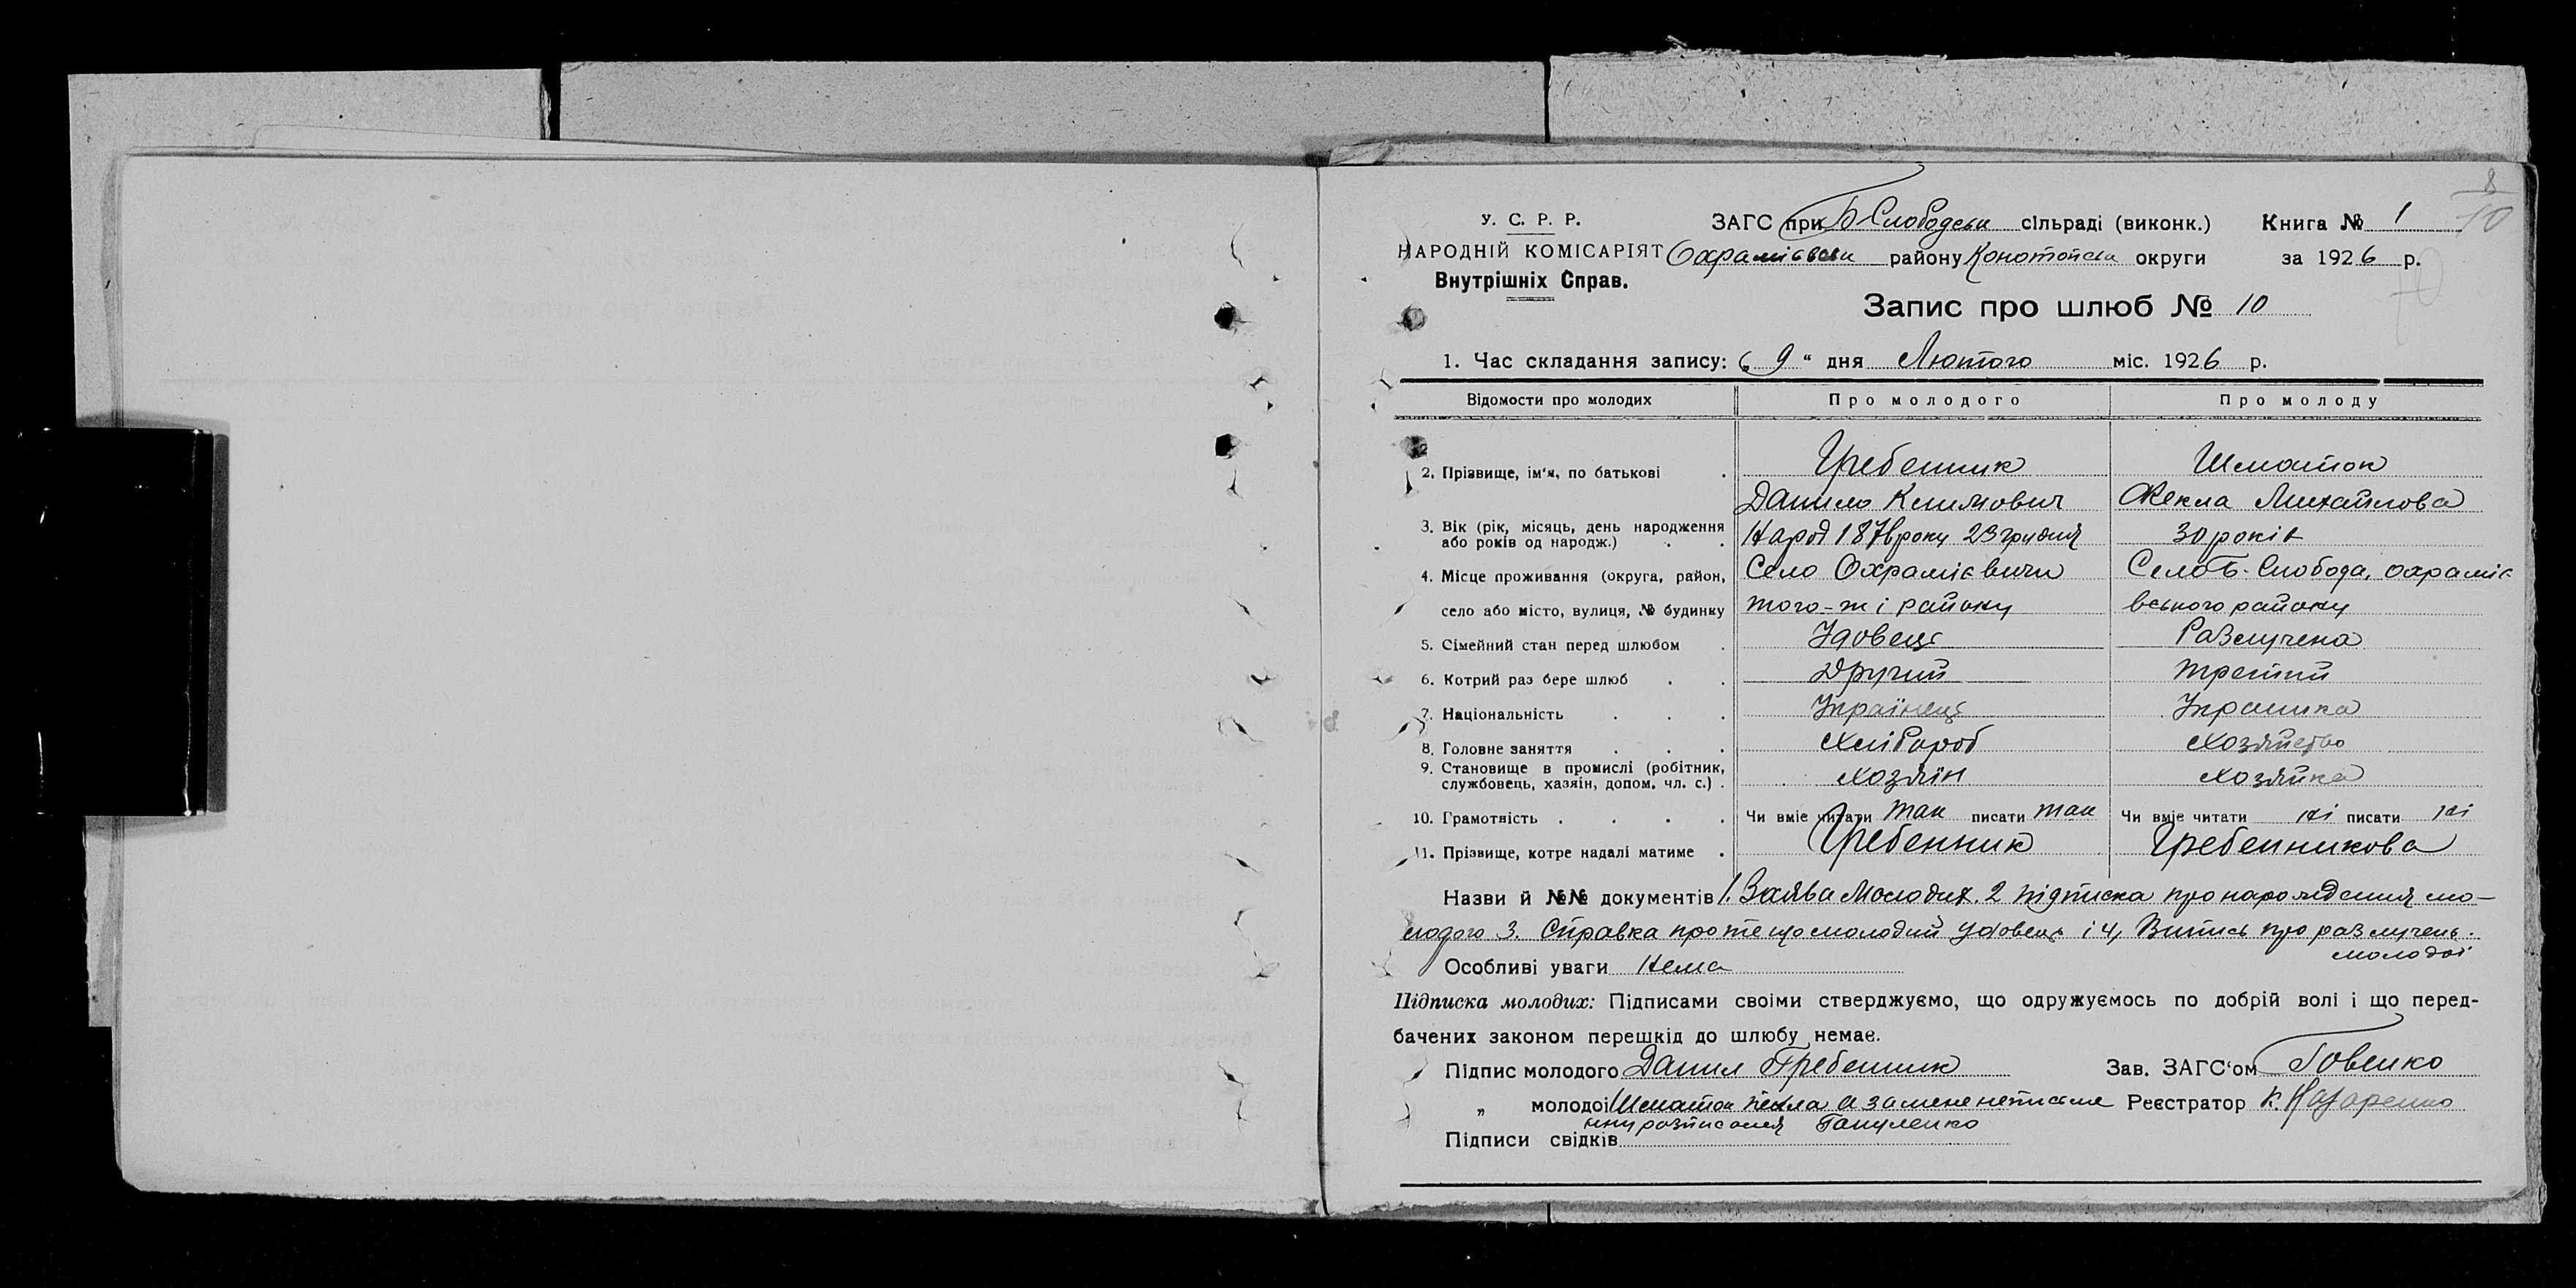 8
10
У. С. Р. Р. ЗАГС при Б-Слободськ сільраді (виконк.) Книга № 1
НАРОДНІЙ КОМІСАРІЯТ Охрамієвськ району Конотопськ округи за 1926 р.
Внутрішніх Справ.
Запис про шлюб № 10
1. Час складання запису: „9“ дня Лютого міс. 1926 р.
Відомости про молодих Про молодого Про молоду
2. Прізвище, ім'я, по батькові Гребенник Шматок
Данило Климович Фекла Михайлова
3. Вік (рік, місяць, день народження або років од народж.) Народ 187 року 23 грудня 30 років
4. Місце проживання (округа, район, Село Охрамієвичи Село Б-Слобода, охраміє
село або місто, вулиця, № будинку того-ж і району вського району
5. Сімейний стан перед шлюбом Удовець Разлучена
6. Котрий раз бере шлюб Другий третий
7. Національність Українець Украинка
8. Головне заняття Хлібороб Хозяйство
9. Становище в промислі (робітник, службовець, хазяїн, допом. чл. с.) Хозяін Хозяйка
10. Грамотність Чи вміє читати так писати так Чи вміє читати ні писати ні
11. Прізвище, котре надалі матиме Гребенник Гребенникова
Назви й №№ документів 1. Заява Молодих. 2 підписка про народження мо-
лодого 3. Справка про те що молодий удовець і 4, Витись про разлучень.
молодої
Особливі уваги Нема
Підписка молодих: Підписами своїми стверджуємо, що одружуємось по добрій волі і що перед-
бачених законом перешкід до шлюбу немає.
Підпис молодого Данил Гребенник Зав. ЗАГС'ом Говенко
„ молодої Шматок Текла а за мене неписме Реєстратор К. Назаренко
нну розписался
Підписи свідків